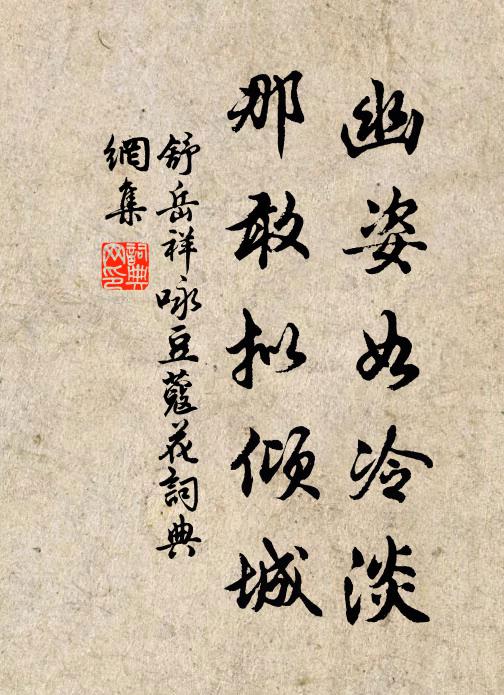 幽姿如冷淡
那敢拟倾城
舒岳祥咏豆蔻花詞典
網集
詞典
网印